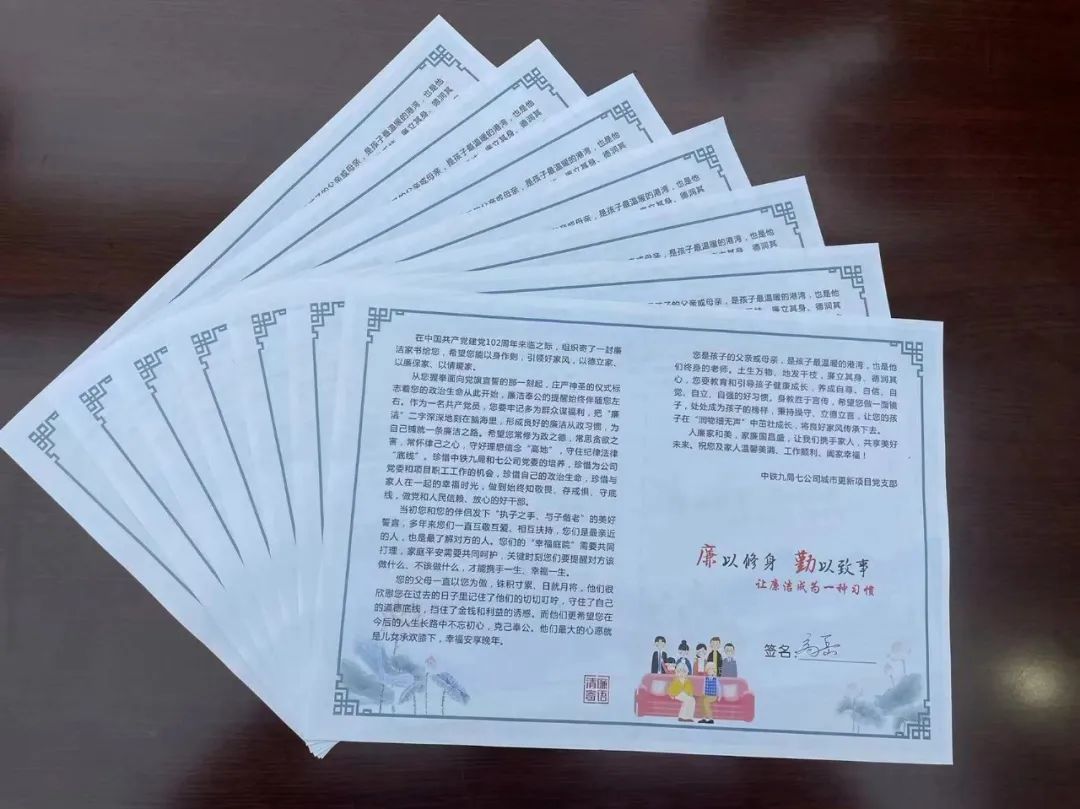 在中国共产党建党102周年来临之际，组织寄了一封廉
洁家书给您，希望您能以身作则，引领好家风，以德立家、
以廉保家、以情暖家。
从您握拳面向党旗宣誓的那一刻起，庄严神圣的仪式标
志着您的政治生命从此开始，廉洁奉公的提醒始终伴随您左
右。作为一名共产党员，您要牢记多为群众谋福利，把“廉
洁”二字深深地刻在脑海里，形成良好的廉洁从政习惯，为
自己铺就一条廉洁之路。希望您常修为政之德，常思贪欲之
害，常怀律己之心，守好理想信念“高地”，守住纪律法律
“底线”。珍惜中铁九局和七公司党委的培养，珍惜为公司
党委和项目职工工作的机会，珍惜自己的政治生命，珍惜与
家人在一起的幸福时光，做到始终知敬畏、存戒惧、守底
线，做党和人民信赖、放心的好干部。
当初您和您的伴侣发下“执子之手、与子偕老”的美好
誓言，多年来您们一直互敬互爱、相互扶持，您们是最亲近
的人，也是最了解对方的人。您们的“幸福庭院”需要共同
打理，家庭平安需要共同呵护，关键时刻您们要提醒对方该
做什么、不该做什么，才能携手一生、幸福一生。
您的父母一直以您为傲，铢积寸累、日就月将，他们很
欣慰您在过去的日子里记住了他们的切切叮咛，守住了自己
的道德底线，挡住了金钱和利益的诱惑。而他们更希望您在
今后的人生长路中不忘初心，克己奉公。他们最大的心愿就
是儿女承欢膝下，幸福安享晚年。
清廉
寄语
您是孩子的父亲或母亲，是孩子最温暖的港湾，也是他
们终身的老师。土生万物、地发千枝，廉立其身、德润其
心，您要教育和引导孩子健康成长，养成自尊、自信、自
觉、自立、自强的好习惯。身教胜于言传，希望您做一面镜
子，处处成为孩子的榜样，秉持操守、立德立言，让您的孩
子在“润物细无声”中茁壮成长，将良好家风传承下去。
人廉家和美，家廉国昌盛，让我们携手家人，共享美好
未来。祝您及家人温馨美满、工作顺利、阖家幸福！
中铁九局七公司城市更新项目党支部
廉以修身 勤以致事
让廉洁成为一种习惯
签名：高岳